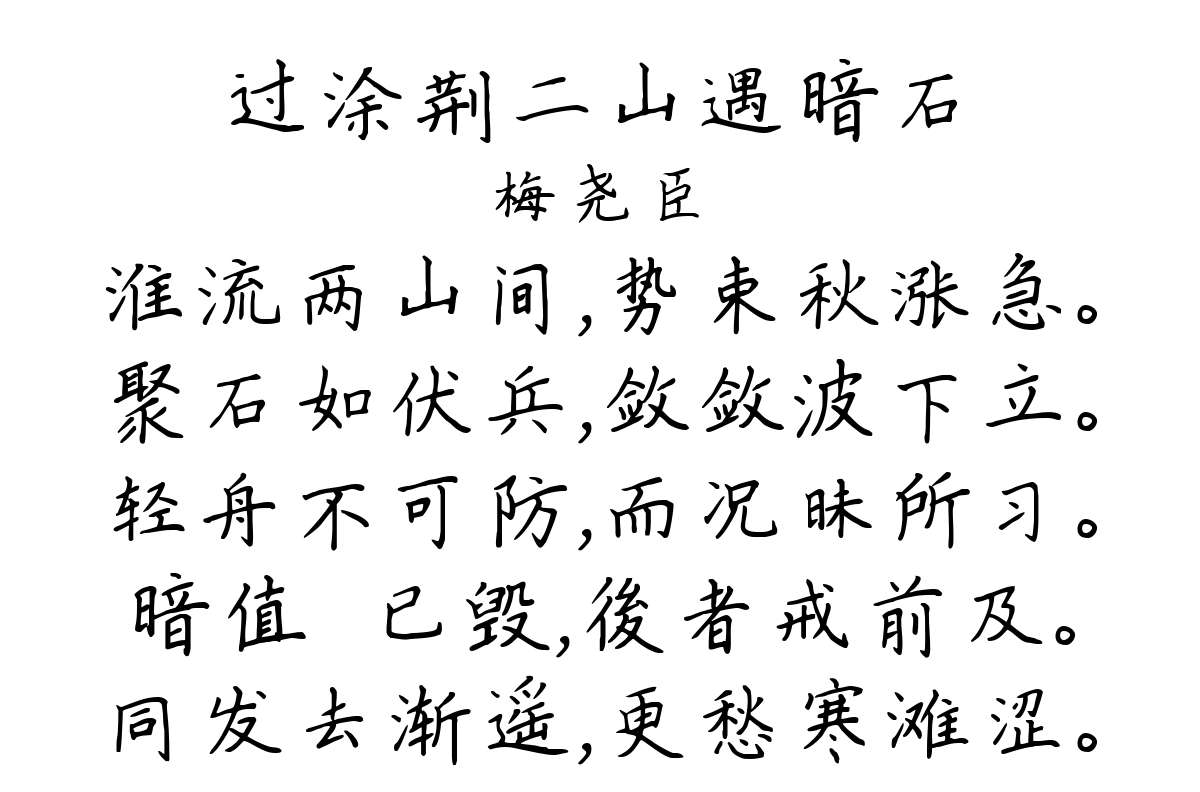 过涂荆二山遇暗石
梅尧臣
淮流两山间,势束秋涨急。
聚石如伏兵,敛敛波下立。
轻舟不可防,而况昧所习。
暗值 已毁,後者戒前及。
同发去渐遥,更愁寒滩涩。